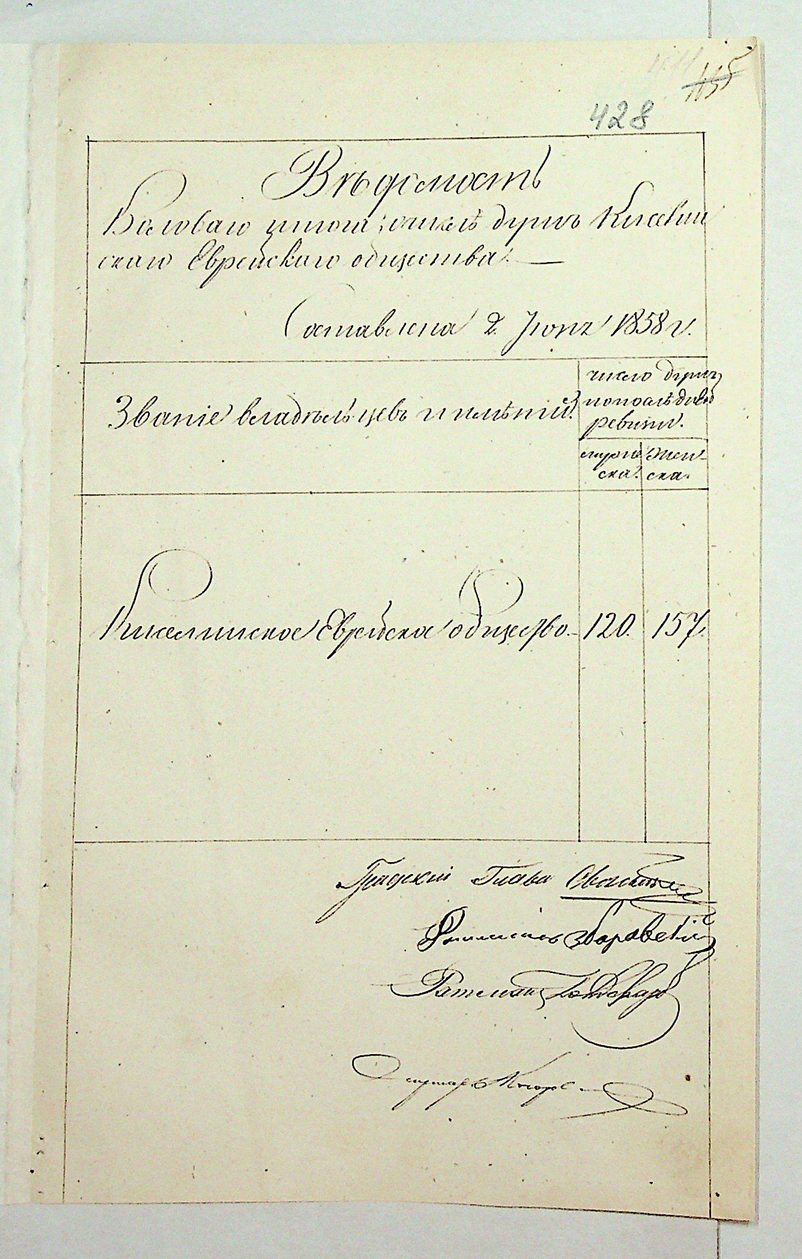 115
428
Вѣдомость
Валоваго итога о числѣ душъ Киселин
скаго Еврейскаго общества.
Составлена 2 Іюня 1858 г.
Званіе владѣльцевъ и имѣній.
число душъ
по послѣдней
ревизіи.
мужс
ска.
Жен-
ска.
Киселинское Еврейское общество. 120. 157.
Градскій Глава
Ратманъ Боровскій
Ратманъ